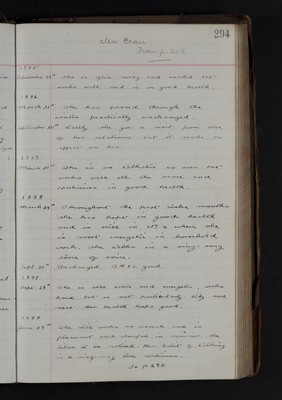 294
From p. 203
1895
September 30th She is often noisy and excited but
works well and is in good health.
1896
March 31st She has passed through the
months practically unchanged.
September 30th Lately she got a visit from one
of her relations but it made no
effect on her.
1897
March 31st She is as as ever but
works well all the same and
continues in good health.
1898
March 31st Throughout the past twelve months
she has kept in good health
and is still in where she
is most energetic in household
work. She talks in a sing-song
tone of voice.
Sept. 30th Unchanged. good.
1899
Sept. 28th She is still active and energetic, who
but is not particularly tidy and
neat. Her health keeps good.
1900
June 29th She still works as usual and is
pleasant and cheerful in manner. She
likes to be Her habit of talking
in a sing-song tone continues.
To p 296